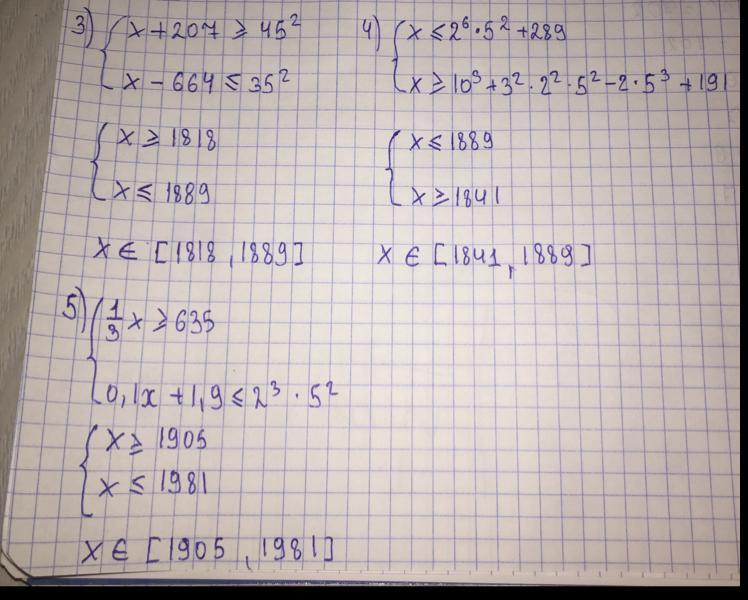 3) { x + 207 ⩾ 45²
x - 664 ⩽ 35²
{ x ⩾ 1818
x ⩽ 1889
x ∈ [1818, 1889]
4) { x ⩽ 2⁶ · 5² + 289
x ⩾ 10³ + 3² · 2² · 5² - 2 · 5³ + 191
{ x ⩽ 1889
x ⩾ 1841
x ∈ [1841, 1889]
5) { 1/3 x ⩾ 635
0,1x + 1,9 ⩽ 2³ · 5²
{ x ⩾ 1905
x ⩽ 1981
x ∈ [1905, 1981]